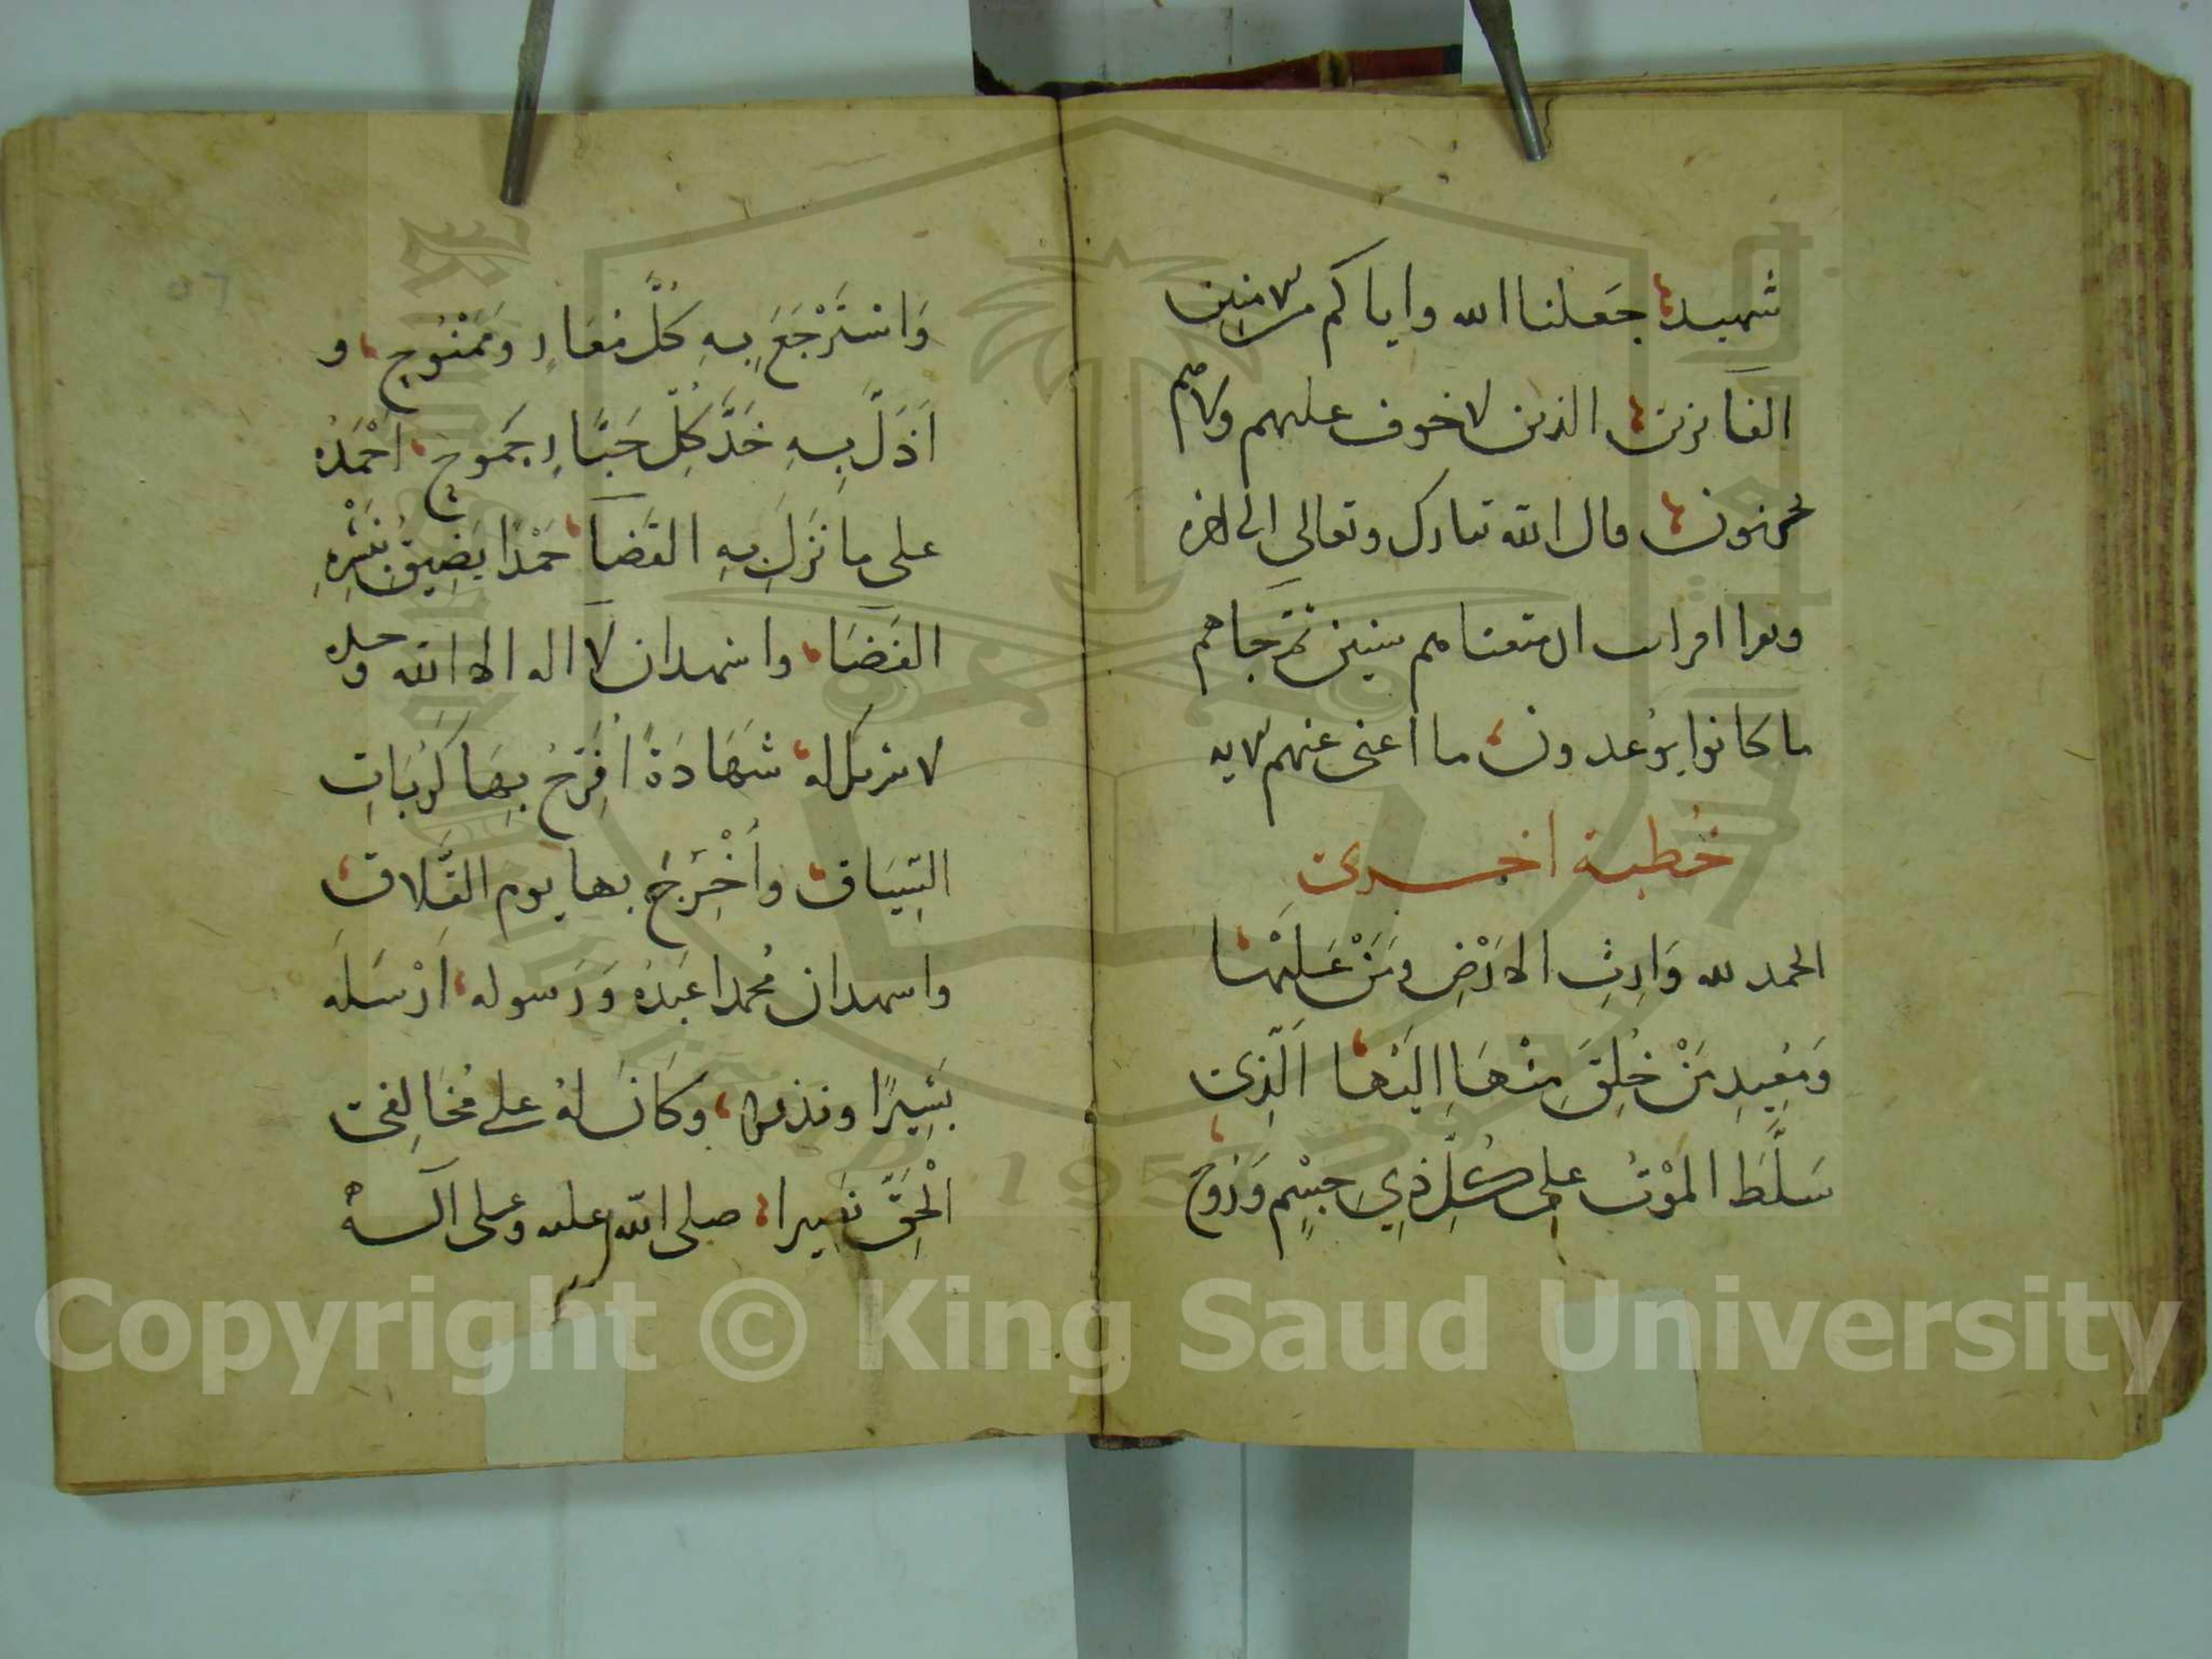 شهيد جعلنا الله واياكم من الامنين
الفائزين الذين لا خوف عليهم ولا هم
يحزنون قال الله تبارك وتعالى الى اخره
وقرا افرايت ان متعناهم سنين ثم جاهم
ما كانوا يوعدون ما اغنى عنهم الايه
خُطبة اخرى
الحمد لله وَارِثِ الاَرْضِ ومَنْ عَلَيْهَا
وَمُعِيدِ مَنْ خُلِقَ مِنْهَا اِلَيْهَا الَّذِى
سَلَّطَ المَوْتَ على كُلِّ ذِي جِسْمٍ وَرُوحٍ
وَاسْتَرْجَعَ بِهِ كُلَّ مُعَارٍ وَمَمْنُوحٍ و
اَذَلَّ بِهِ خَدَّ كُلِّ جَبَّارٍ جَمَوحٍ اَحْمَدُهُ
على ما نَزَلَ بِهِ القَضَآ حَمْدًا يَضِيقُ بِنَشْرِهِ
الفَضَآ واشهد ان لا اله الا الله وحده
لا شريك له شَهَادَةً اُفَرِّجُ بِهَا كُرُبَاتِ
السِّيَاق واُخْرَجُ بها يوم التَّلاق
واشهد ان مُحمدا عَبْدُهُ وَرَسوله اَرْسَلَه
بَشِيرًا ونذيرا وكَانَ لهُ على مُخَالِفى
الْحَقِّ نَصِيرا صلى الله عليه وعلى آله
Copyright © King Saud University
1957